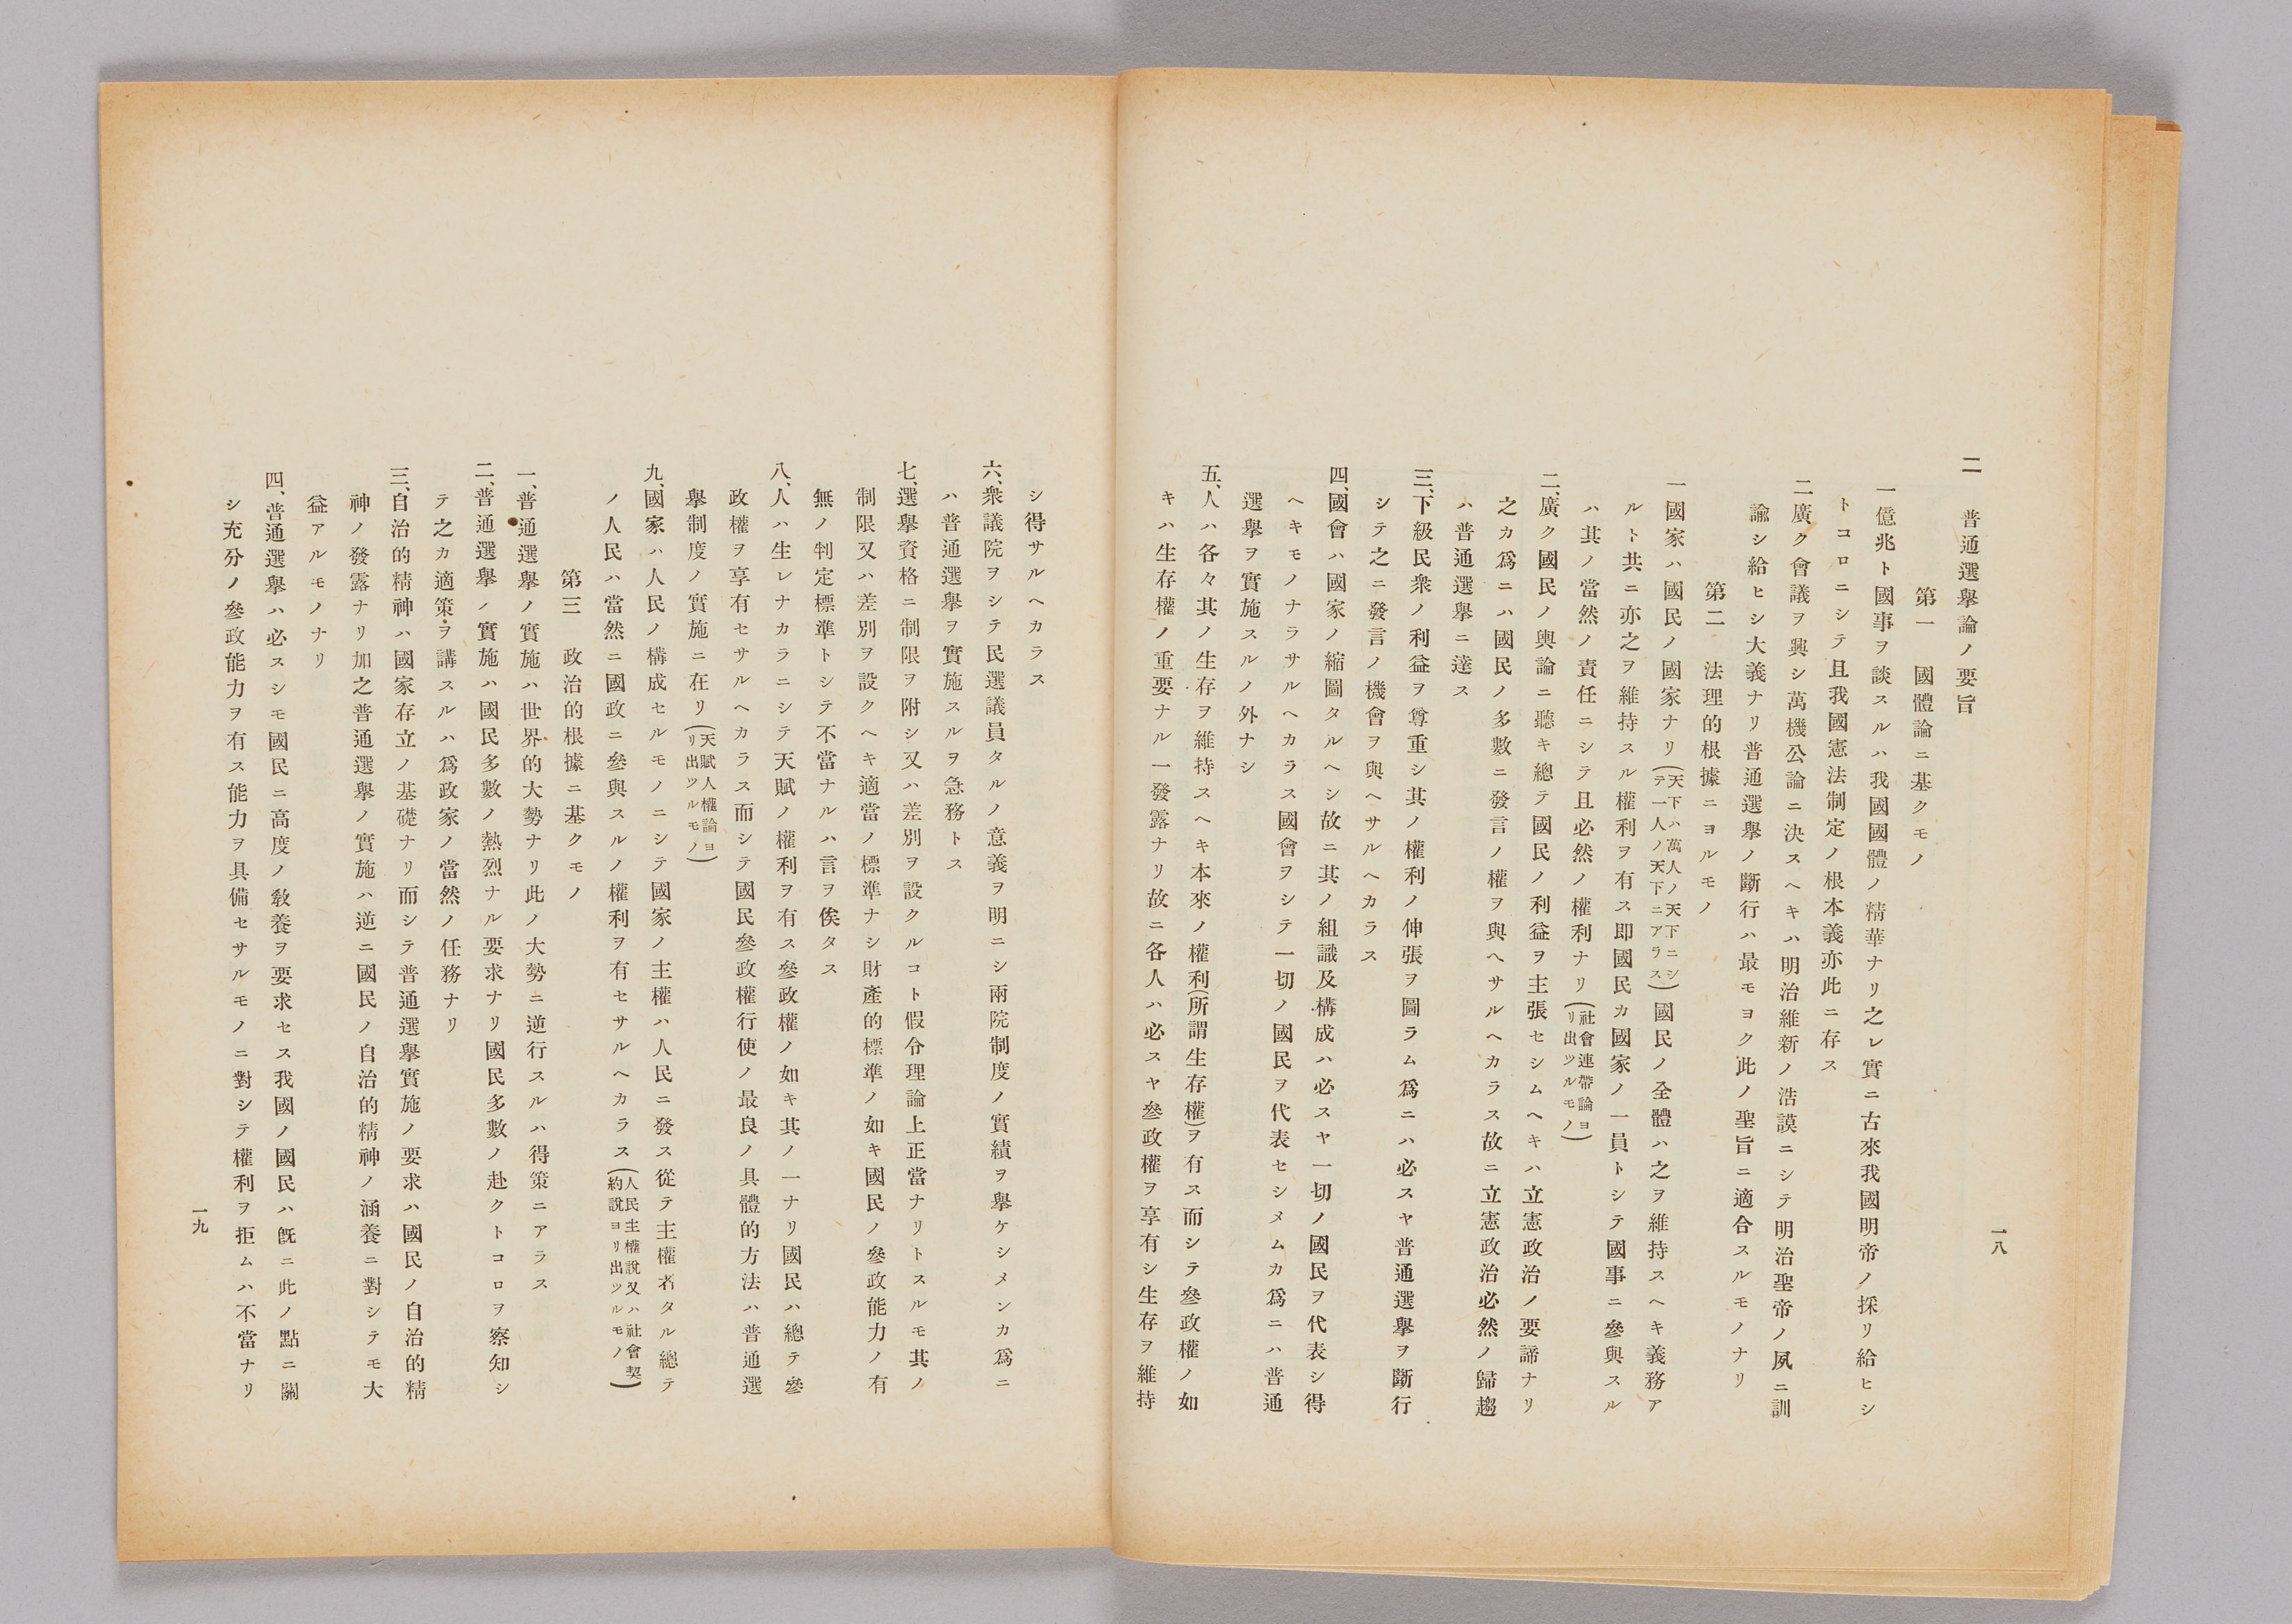 二　普通選擧論ノ要旨
第一　國體論ニ基クモノ
一億兆ト國事ヲ談スルハ我國國體ノ精華ナリ之レ實ニ古來我國明帝ノ採リ給ヒシ
トコロニシテ且我國憲法制定ノ根本義亦此ニ存ス
二廣ク會議ヲ興シ萬機公論ニ決スヘキハ明治維新ノ浩謨ニシテ明治聖帝ノ夙ニ訓
諭シ給ヒシ大義ナリ普通選擧ノ斷行ハ最モヨク此ノ聖旨ニ適合スルモノナリ
第二　法理的根據ニヨルモノ
一國家ハ國民ノ國家ナリ(天下ハ萬人ノ天下ニシテ一人ノ天下ニアラス)國民ノ全體ハ之ヲ維持スヘキ義務ア
ルト共ニ亦之ヲ維持スル權利ヲ有ス即國民カ國家ノ一員トシテ國事ニ參與スル
ハ其ノ當然ノ責任ニシテ且必然ノ權利ナリ(社會連帶論ヨリ出ツルモノ)
二、廣ク國民ノ輿論ニ聽キ總テ國民ノ利益ヲ主張セシムヘキハ立憲政治ノ要諦ナリ
之カ爲ニハ國民ノ多數ニ發言ノ權ヲ與ヘサルヘカラス故ニ立憲政治必然ノ歸趨
ハ普通選擧ニ達ス
三、下級民衆ノ利益ヲ尊重シ其ノ權利ノ伸張ヲ圖ラム爲ニハ必スヤ普通選擧ヲ斷行
シテ之ニ發言ノ機會ヲ與ヘサルヘカラス
四、國會ハ國家ノ縮圖タルヘシ故ニ其ノ組識及構成ハ必スヤ一切ノ國民ヲ代表シ得
ヘキモノナラサルヘカラス國會ヲシテ一切ノ國民ヲ代表セシメムカ爲ニハ普通
選擧ヲ實施スルノ外ナシ
五、人ハ各々其ノ生存ヲ維持スヘキ本來ノ權利(所謂生存權)ヲ有ス而シテ參政權ノ如
キハ生存權ノ重要ナル一發露ナリ故ニ各人ハ必スヤ參政權ヲ享有シ生存ヲ維持
一八
シ得サルヘカラス
六、衆議院ヲシテ民選議員タルノ意義ヲ明ニシ兩院制度ノ實績ヲ擧ケシメンカ爲ニ
ハ普通選擧ヲ實施スルヲ急務トス
七、選擧資格ニ制限ヲ附シ又ハ差別ヲ設クルコト假令理論上正當ナリトスルモ其ノ
制限又ハ差別ヲ設クヘキ適當ノ標準ナシ財產的標準ノ如キ國民ノ參政能力ノ有
無ノ判定標準トシテ不當ナルハ言ヲ俟タス
八、人ハ生レナカラニシテ天賦ノ權利ヲ有ス參政權ノ如キ其ノ一ナリ國民ハ總テ參
政權ヲ享有セサルヘカラス而シテ國民參政權行使ノ最良ノ具體的方法ハ普通選
擧制度ノ實施ニ在リ(天賦人權論ヨリ出ツルモノ)
九、國家ハ人民ノ構成セルモノニシテ國家ノ主權ハ人民ニ發ス從テ主權者タル總テ
ノ人民ハ當然ニ國政ニ參與スルノ權利ヲ有セサルヘカラス(人民主權說又ハ社會契約說ヨリ出ツルモノ)
第三　政治的根據ニ基クモノ
一、普通選擧ノ實施ハ世界的大勢ナリ此ノ大勢ニ逆行スルハ得策ニアラス
二、普通選擧ノ實施ハ國民多數ノ熱烈ナル要求ナリ國民多數ノ赴クトコロヲ察知シ
テ之カ適策ヲ講スルハ爲政家ノ當然ノ任務ナリ
三、自治的精神ハ國家存立ノ基礎ナリ而シテ普通選擧實施ノ要求ハ國民ノ自治的精
神ノ發露ナリ加之普通選擧ノ實施ハ逆ニ國民ノ自治的精神ノ涵養ニ對シテモ大
益アルモノナリ
四、普通選擧ハ必スシモ國民ニ高度ノ敎養ヲ要求セス我國ノ國民ハ旣ニ此ノ點ニ關
シ充分ノ參政能力ヲ有ス能力ヲ具備セサルモノニ對シテ權利ヲ拒ムハ不當ナリ
一九